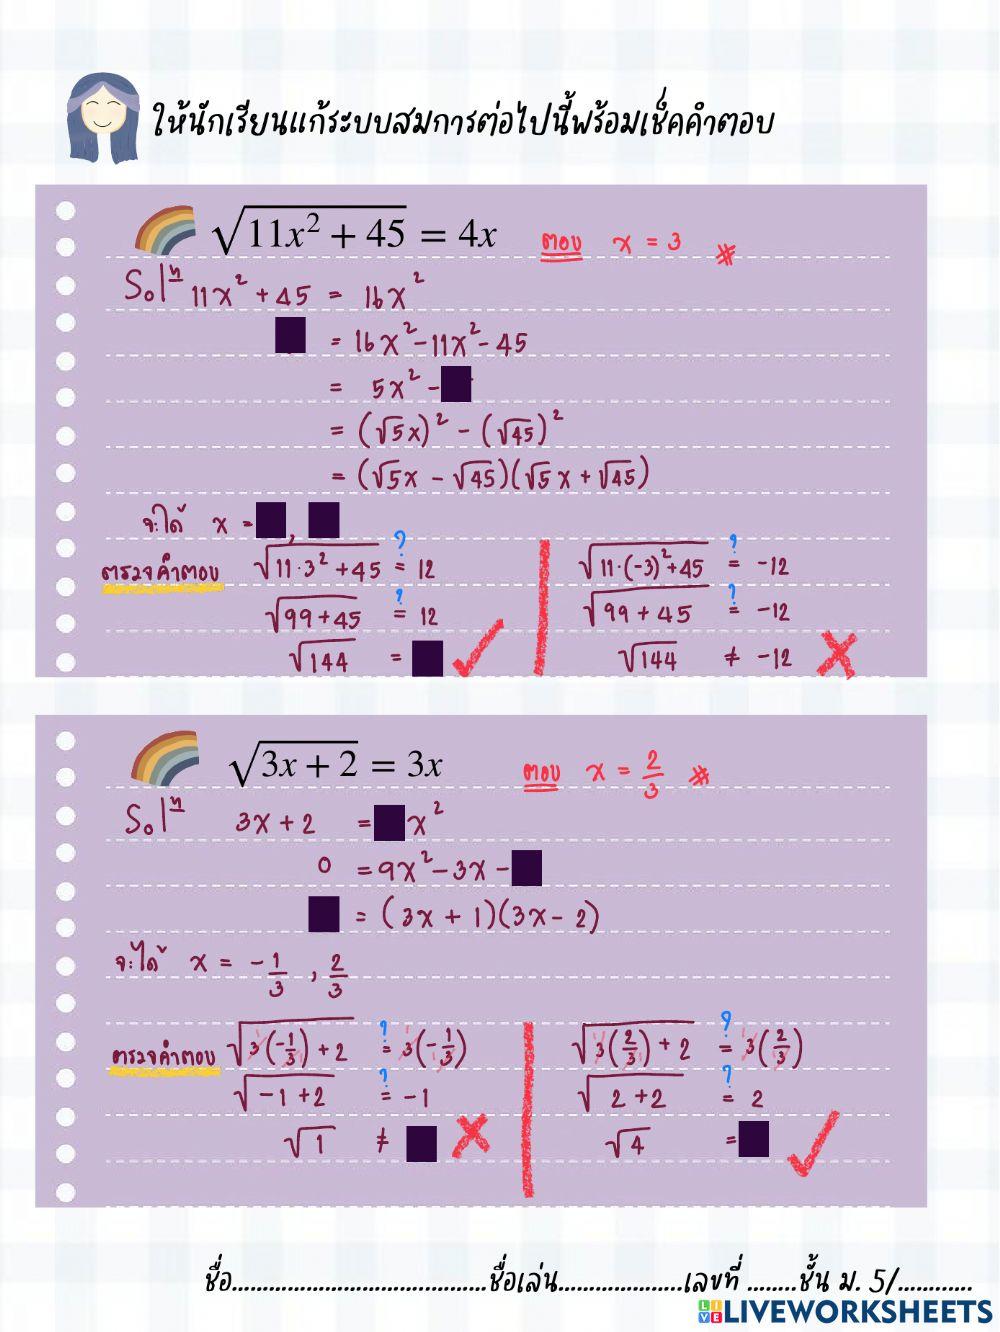 ให้นักเรียนแก้ระบบสมการต่อไปนี้พร้อมเช็คคำตอบ
√(11x² + 45) = 4x
ตอบ x = 3 #
Solⁿ 11x² + 45 = 16x²
= 16x² - 11x² - 45
= 5x² -
= (√5x)² - (√45)²
= (√5x - √45)(√5x + √45)
จะได้ x = ,
ตรวจคำตอบ √(11·3² + 45) ≟ 12
√(99 + 45) ≟ 12
√144 =
√(11·(-3)² + 45) ≟ -12
√(99 + 45) ≟ -12
√144 ≠ -12
√(3x + 2) = 3x
ตอบ x = 2/3 #
Solⁿ 3x + 2 = x²
0 = 9x² - 3x -
= (3x + 1)(3x - 2)
จะได้ x = -1/3 , 2/3
ตรวจคำตอบ √(3(-1/3) + 2) ≟ 3(-1/3)
√(-1 + 2) ≟ -1
√1 ≠
√(3(2/3) + 2) ≟ 3(2/3)
√(2 + 2) ≟ 2
√4 =
ชื่อ......................................ชื่อเล่น...................เลขที่ ........ชั้น ม. 5/...........
LIVEWORKSHEETS